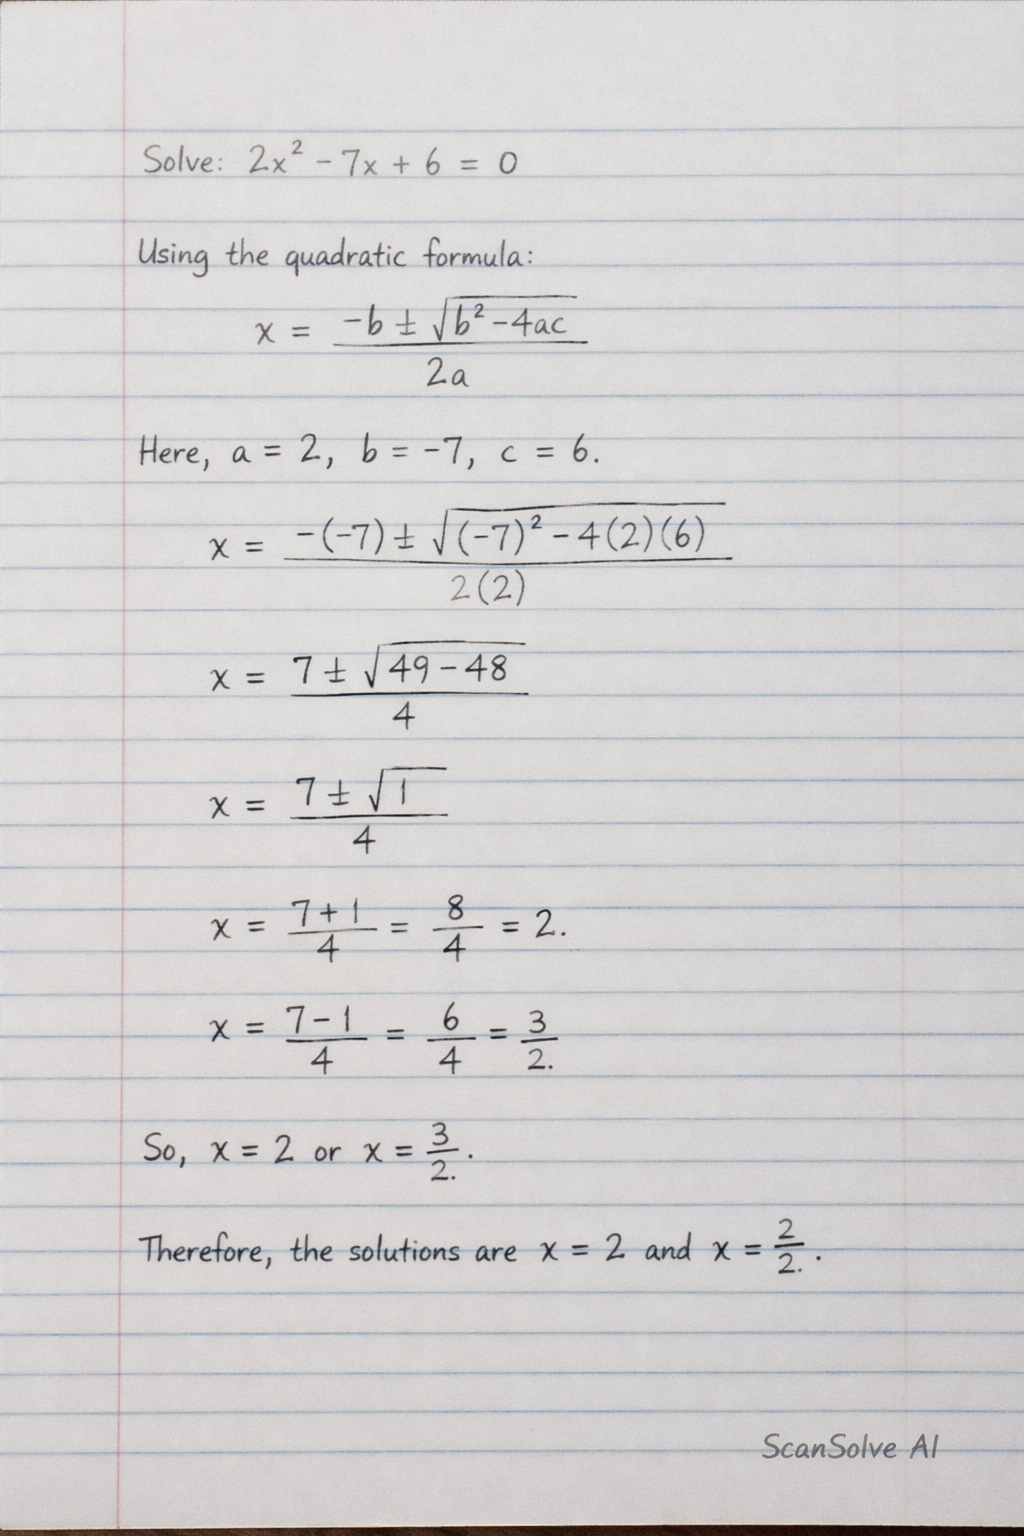 Solve: 2x² - 7x + 6 = 0
Using the quadratic formula:
x = (-b ± √(b² - 4ac)) / 2a
Here, a = 2, b = -7, c = 6.
x = (-(-7) ± √((-7)² - 4(2)(6))) / 2(2)
x = (7 ± √(49 - 48)) / 4
x = (7 ± √1) / 4
x = (7 + 1)/4 = 8/4 = 2.
x = (7 - 1)/4 = 6/4 = 3/2.
So, x = 2 or x = 3/2. .
Therefore, the solutions are x = 2 and x = 2/2. .
ScanSolve AI